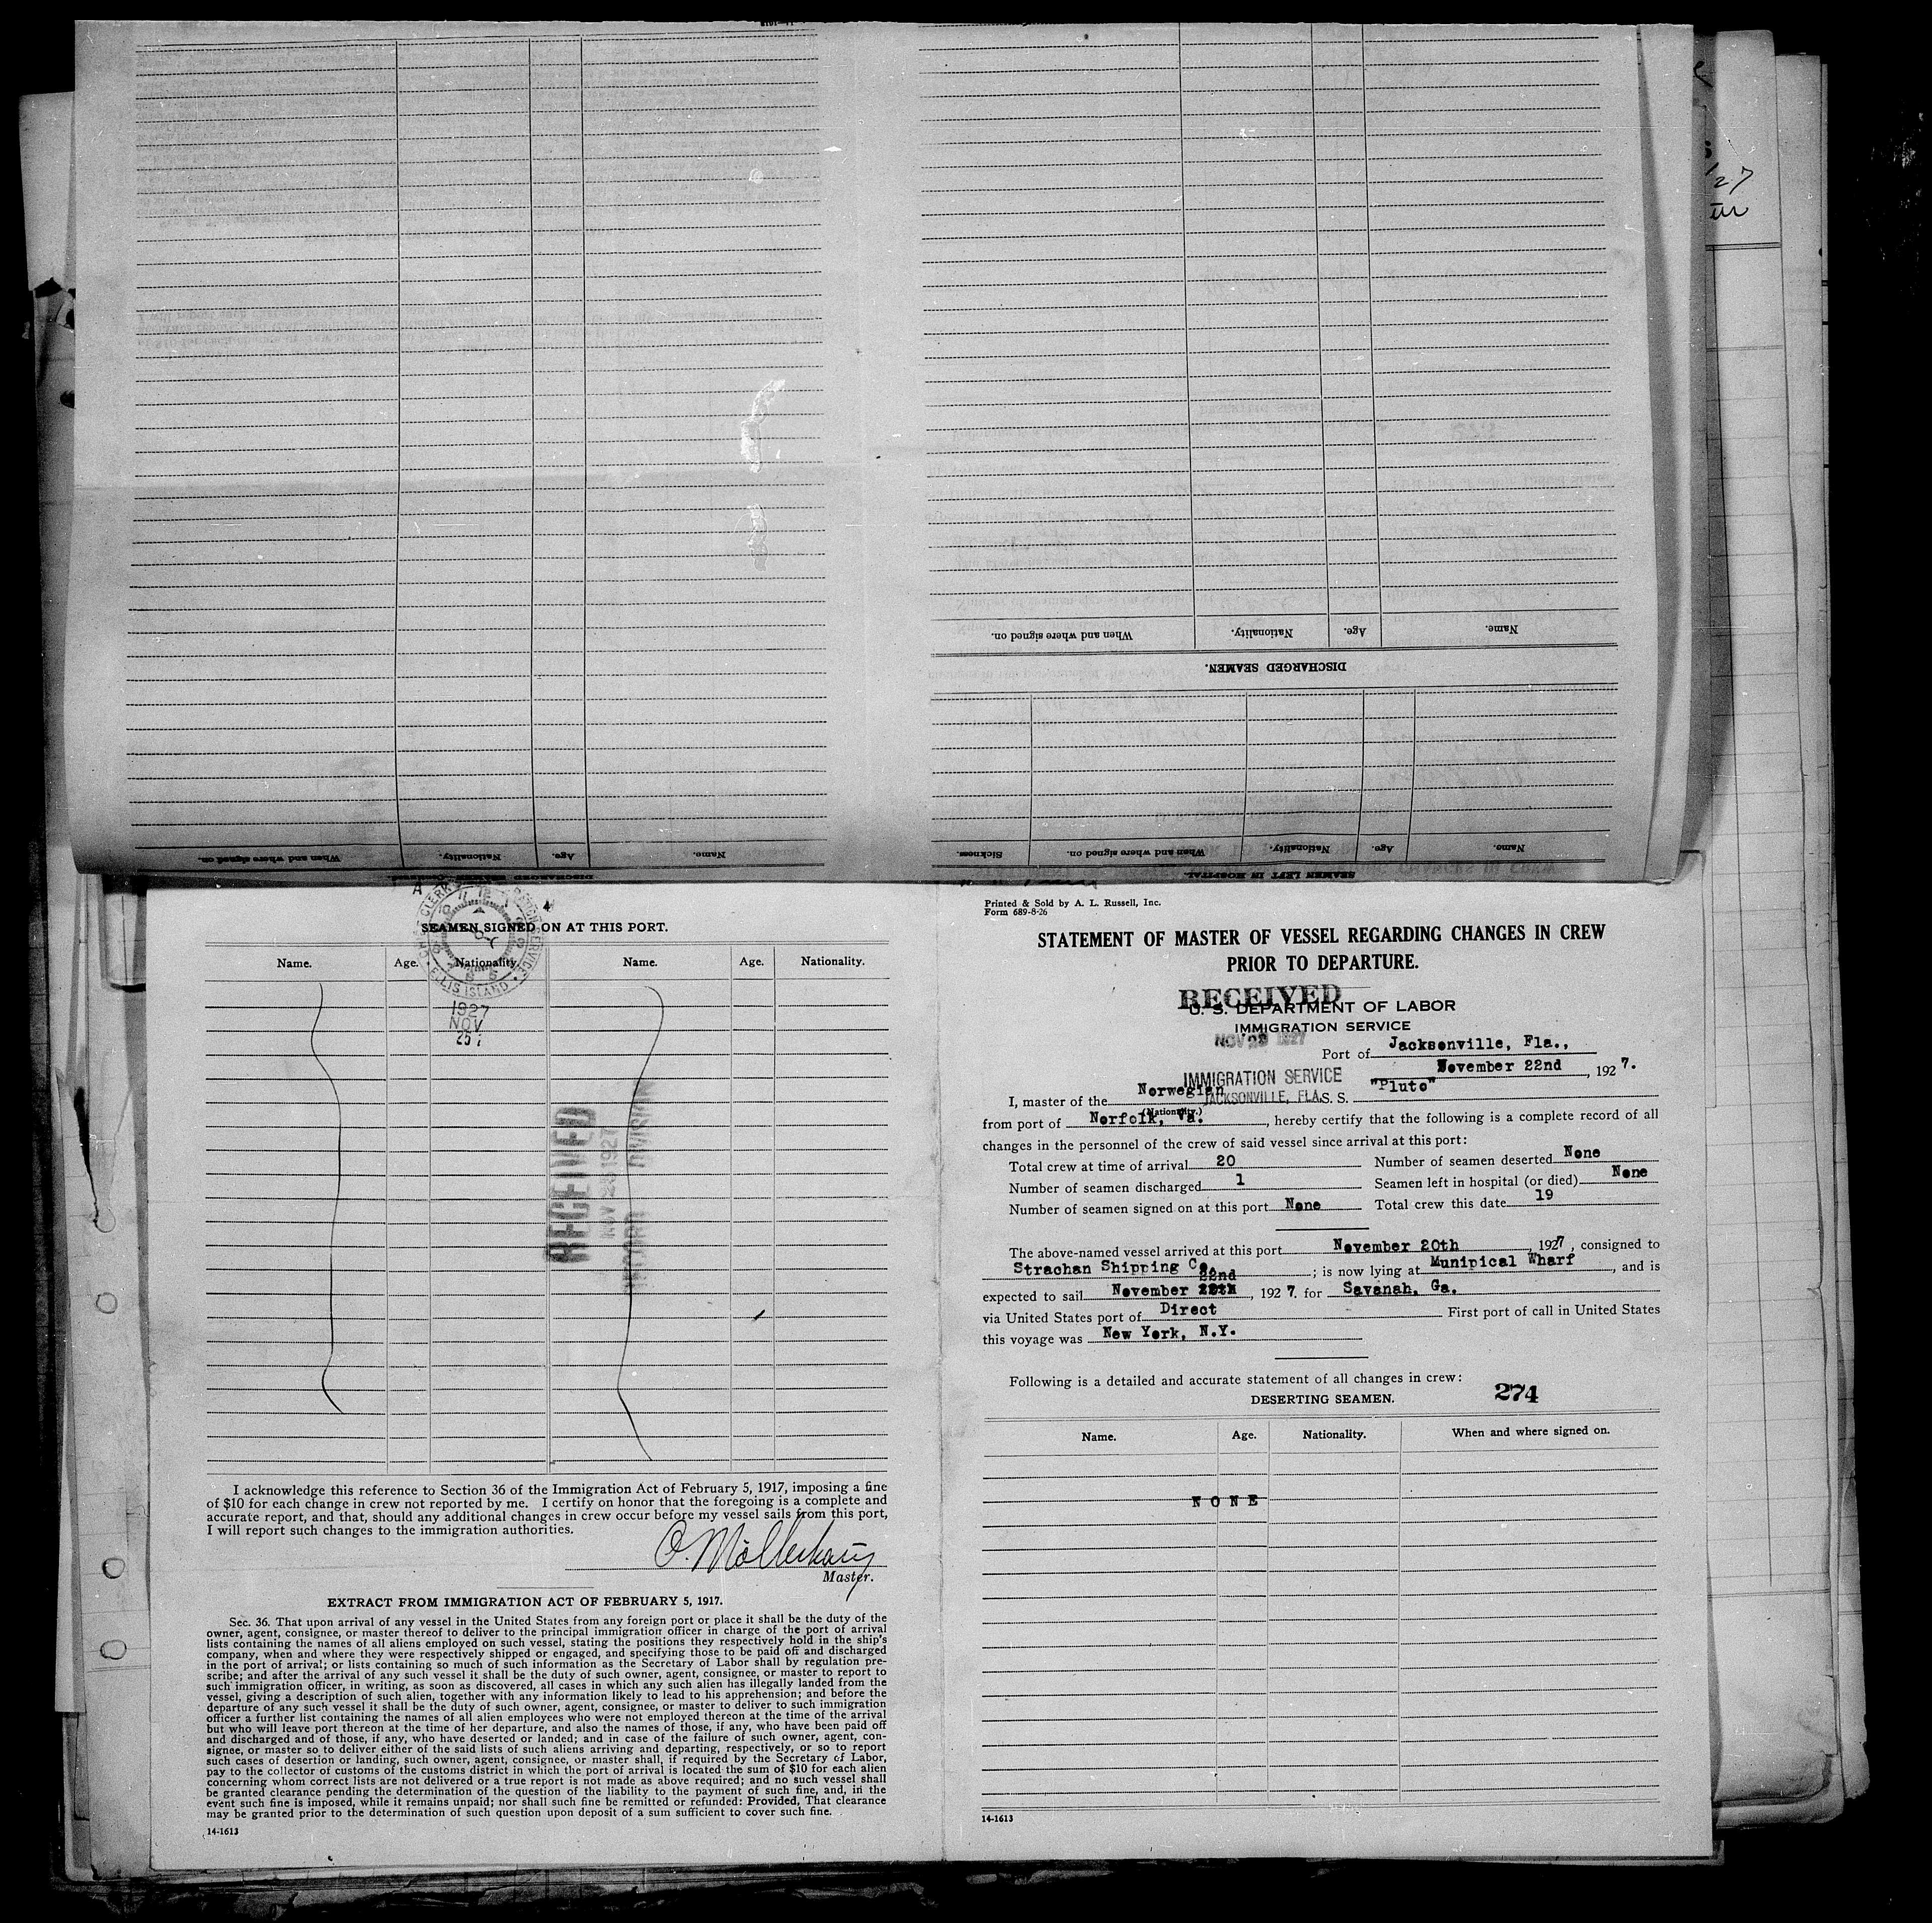 When and where signed on.
Nationality.
Age.
Name.
DISCHARGED SEAMEN.
Name.
Age.
Nationality.
When and where signed on.
Sickness.
SEAMEN LEFT IN HOSPITAL.
Name.
Age.
Nationality.
When and where signed on.
/27
SEAMEN SIGNED ON AT THIS PORT.
Name. Age. Nationality. Name. Age. Nationality.
ELLIS ISLAND
1927
NOV
25
RECEIVED
NOV 1927
RECORD DIVISION
I acknowledge this reference to Section 36 of the Immigration Act of February 5, 1917, imposing a fine
of $10 for each change in crew not reported by me. I certify on honor that the foregoing is a complete and
accurate report, and that, should any additional changes in crew occur before my vessel sails from this port,
I will report such changes to the immigration authorities.
Master.
EXTRACT FROM IMMIGRATION ACT OF FEBRUARY 5, 1917.
Sec. 36. That upon arrival of any vessel in the United States from any foreign port or place it shall be the duty of the
owner, agent, consignee, or master thereof to deliver to the principal immigration officer in charge of the port of arrival
lists containing the names of all aliens employed on such vessel, stating the positions they respectively hold in the ship's
company, when and where they were respectively shipped or engaged, and specifying those to be paid off and discharged
in the port of arrival; or lists containing so much of such information as the Secretary of Labor shall by regulation pre-
scribe; and after the arrival of any such vessel it shall be the duty of such owner, agent, consignee, or master to report to
such immigration officer, in writing, as soon as discovered, all cases in which any such alien has illegally landed from the
vessel, giving a description of such alien, together with any information likely to lead to his apprehension; and before the
departure of any such vessel it shall be the duty of such owner, agent, consignee, or master to deliver to such immigration
officer a further list containing the names of all alien employees who were not employed thereon at the time of the arrival
but who will leave port thereon at the time of her departure, and also the names of those, if any, who have been paid off
and discharged and of those, if any, who have deserted or landed; and in case of the failure of such owner, agent, con-
signee, or master so to deliver either of the said lists of such aliens arriving and departing, respectively, or so to report
such cases of desertion or landing, such owner, agent, consignee, or master shall, if required by the Secretary of Labor,
pay to the collector of customs of the customs district in which the port of arrival is located the sum of $10 for each alien
concerning whom correct lists are not delivered or a true report is not made as above required; and no such vessel shall
be granted clearance pending the determination of the question of the liability to the payment of such fine, and, in the
event such fine is imposed, while it remains unpaid; nor shall such fine be remitted or refunded: Provided, That clearance
may be granted prior to the determination of such question upon deposit of a sum sufficient to cover such fine.
14-1613
Printed & Sold by A. L. Russell, Inc.
Form 689-8-26
STATEMENT OF MASTER OF VESSEL REGARDING CHANGES IN CREW
PRIOR TO DEPARTURE.
RECEIVED
U. S. DEPARTMENT OF LABOR
IMMIGRATION SERVICE
NOV 1927
Port of Jacksonville, Fla.,
November 22nd, 1927.
IMMIGRATION SERVICE
JACKSONVILLE, FLA.
I, master of the Norwegian S. S. "Pluto"
(Nationality.)
from port of Norfolk, Va., hereby certify that the following is a complete record of all
changes in the personnel of the crew of said vessel since arrival at this port:
Total crew at time of arrival 20 Number of seamen deserted None
Number of seamen discharged 1 Seamen left in hospital (or died) None
Number of seamen signed on at this port None Total crew this date 19
The above-named vessel arrived at this port November 20th, 1927, consigned to
Strachan Shipping Co.; is now lying at Munipical Wharf, and is
expected to sail November 22nd, 1927. for Savanah, Ga.
via United States port of Direct First port of call in United States
this voyage was New York, N.Y.
Following is a detailed and accurate statement of all changes in crew:
274
DESERTING SEAMEN.
Name. Age. Nationality. When and where signed on.
NONE
14-1613